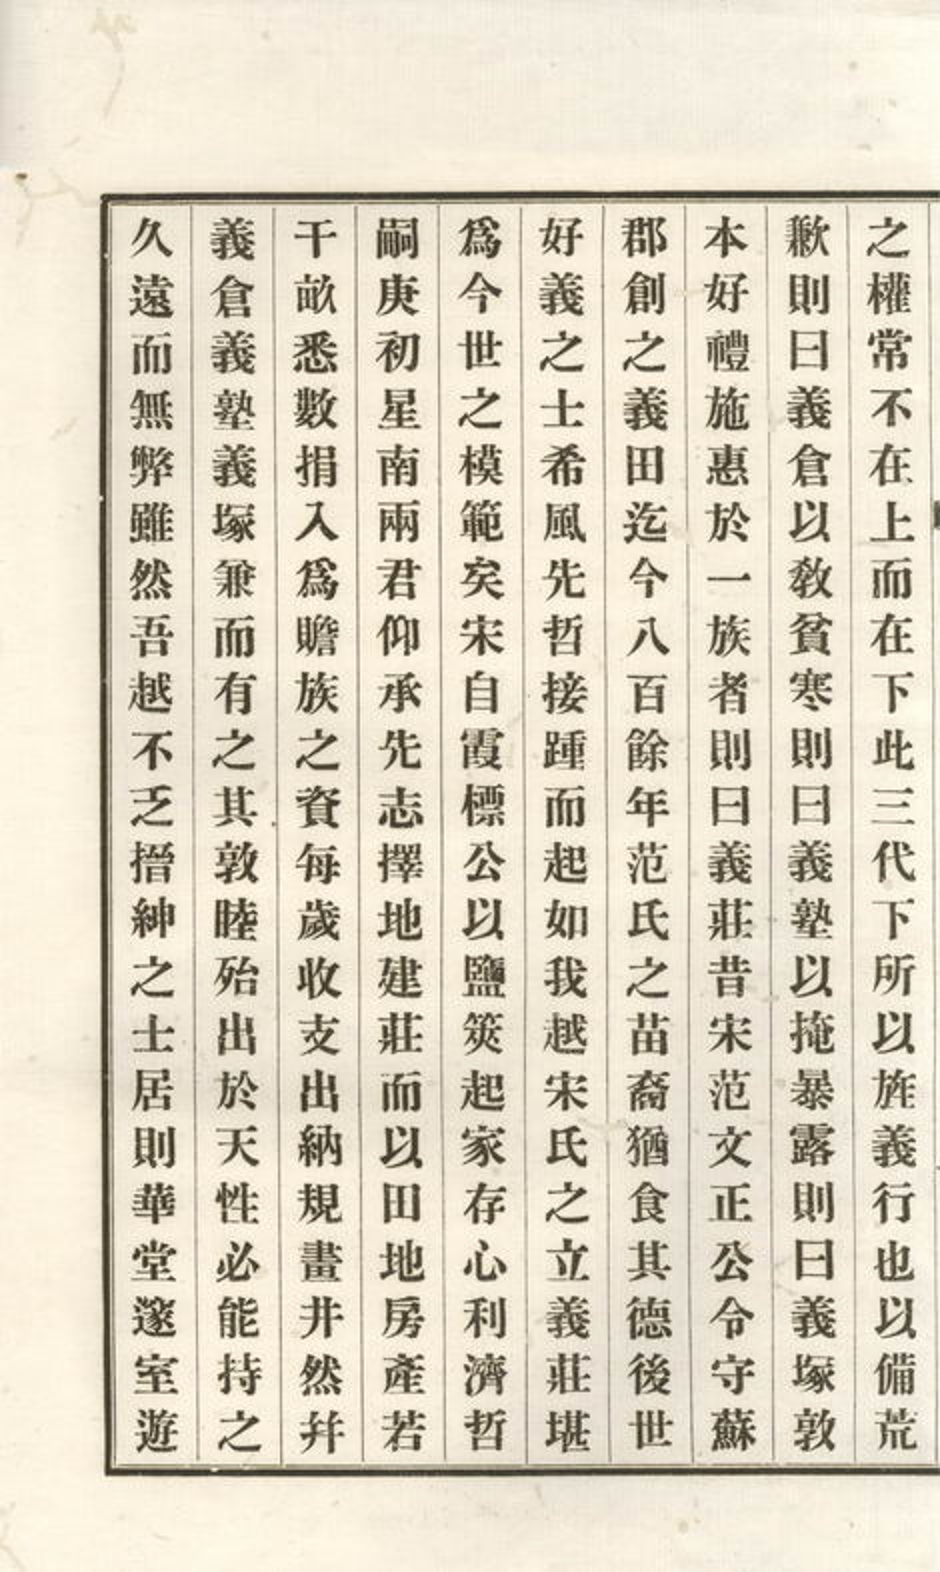 之權常不在上而在下此三代下所以旌義行也以備荒
歉則曰義倉以教貧寒則曰義塾以掩暴露則曰義塚敦
本好禮施惠於一族者則曰義莊昔宋范文正公令守蘇
郡創之義田迄今八百餘年范氏之苗裔猶食其德後世
好義之士希風先哲接踵而起如我越宋氏之立義莊堪
爲今世之模範矣宋自霞標公以鹽筴起家存心利濟哲
嗣庚初星南兩君仰承先志擇地建莊而以田地房產若
干畝悉數捐入爲贍族之資每歲收支出納規畫井然幷
義倉義塾義塚兼而有之其敦睦殆出於天性必能持之
久遠而無弊雖然吾越不乏搢紳之士居則華堂邃室遊